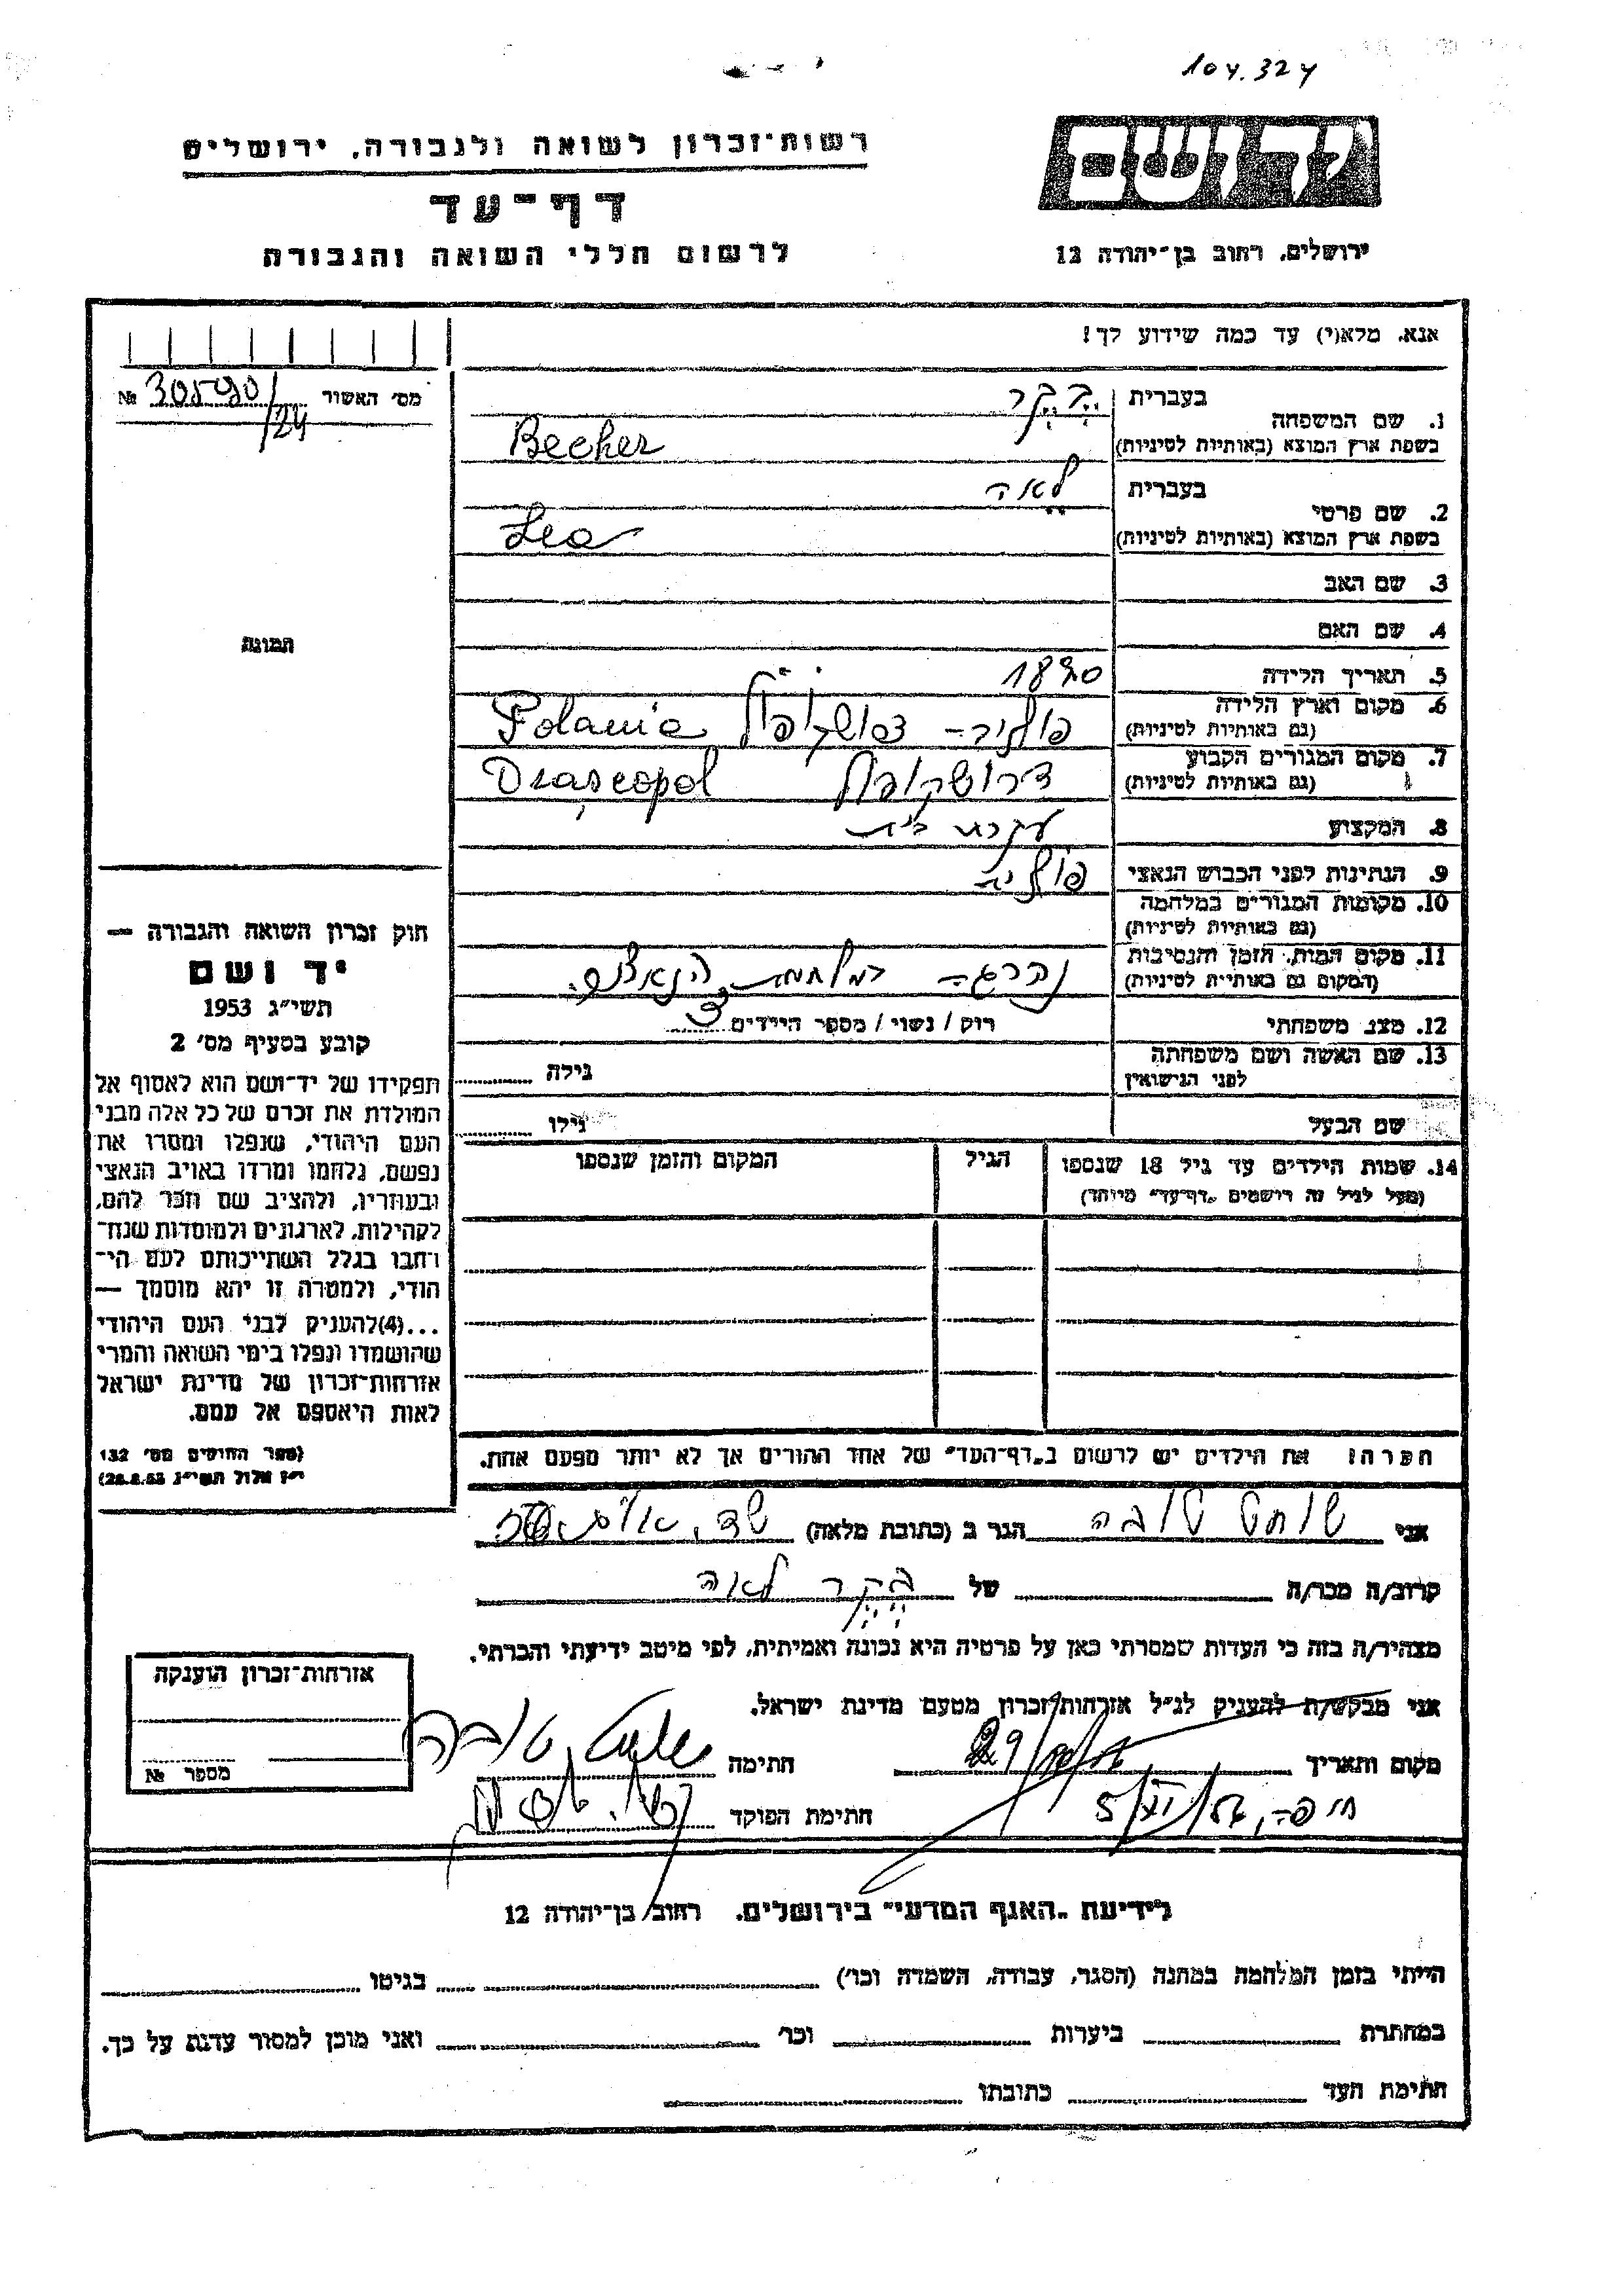 104.324
רשות־זכרון לשואה ולגבורה, ירושלים
יד ושם
דף־עד
לרשום חללי השואה והגבורה
ירושלים, רחוב בן־יהודה 12
אנא, מלא(י) עד כמה שידוע לך!
מס׳ האשור № 305990/24
1. שם המשפחה
בעברית בקר
בשפת ארץ המוצא (באותיות לטיניות) Becher
2. שם פרטי
בעברית לאה
בשפת ארץ המוצא (באותיות לטיניות) Lea
3. שם האב
4. שם האם
תמונה
5. תאריך הלידה 1890
6. מקום וארץ הלידה
(גם באותיות לטיניות) פולניה - Polania
7. מקום המגורים הקבוע
(גם באותיות לטיניות) דרושקופול
8. המקצוע עקרת בית
9. הנתינות לפני הכבוש הנאצי פולניה
10. מקומות המגורים במלחמה
(גם באותיות לטיניות)
11. מקום המות, הזמן והנסיבות
(המקום גם באותיות לטיניות) נהרגה במלחמת הנאצים.
12. מצב משפחתי רוק / נשוי / מספר הילדים 3
13. שם האשה ושם משפחתה
לפני הנישואין גילה
שם הבעל גילו
14. שמות הילדים עד גיל 18 שנספו הגיל המקום והזמן שנספו
(מעל לגיל זה רושמים „דף־עד״ מיוחד)
חוק זכרון השואה והגבורה —
יד ושם
תשי״ג 1953
קובע בסעיף מס׳ 2
תפקידו של יד־ושם הוא לאסוף אל
המולדת את זכרם של כל אלה מבני
העם היהודי, שנפלו ומסרו את
נפשם, נלחמו ומרדו באויב הנאצי
ובעוזריו, ולהציב שם וזכר להם,
לקהילות, לארגונים ולמוסדות שנח־
רבו בגלל השתייכותם לעם הי־
הודי, ולמטרה זו יהא מוסמך —
...(4)להעניק לבני העם היהודי
שהושמדו ונפלו בימי השואה והמרי
אזרחות־זכרון של מדינת ישראל
לאות היאספם אל עמם.
(ספר החוקים מס׳ 132
י״ז אלול תשי״ג 28.8.53)
הערה! את הילדים יש לרשום ב„דף־העד״ של אחד ההורים אך לא יותר מפעם אחת.
אני שוחט טובה הגר ב (כתובת מלאה)
קרוב/ה מכר/ה של בקר לאה
מצהיר/ה בזה כי העדות שמסרתי כאן על פרטיה היא נכונה ואמיתית, לפי מיטב ידיעתי והכרתי.
אני מבקש/ת להעניק לנ״ל אזרחות־זכרון מטעם מדינת ישראל.
מקום ותאריך חתימה שוחט טובה
חיפה, חתימת הפוקד
אזרחות־זכרון הוענקה
מספר №
לידיעת „האגף המדעי״ בירושלים, רחוב בן־יהודה 12
הייתי בזמן המלחמה במחנה (הסגר, עבודה, השמדה וכו׳) בגיטו
במחתרת ביערות וכו׳ ואני מוכן למסור עדות על כך.
חתימת העד כתובתו